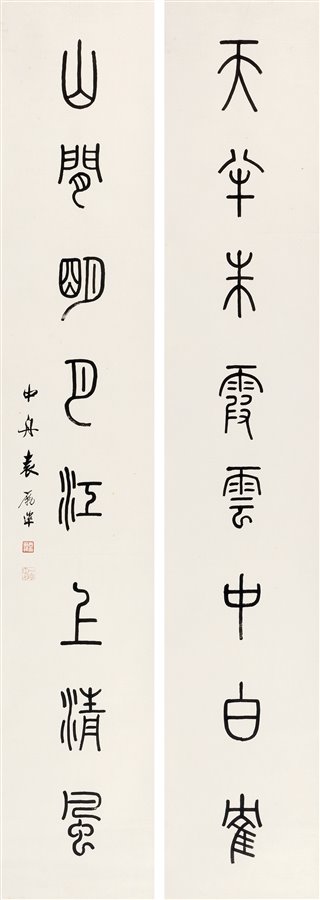 天半朱霞雲中白隺
山閒明月江上清風
中舟袁勵準